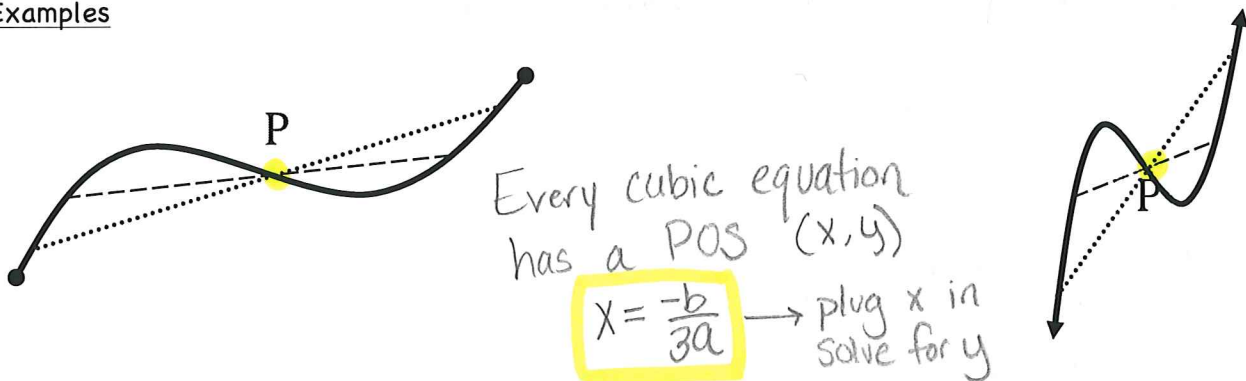 Examples
P
P
Every cubic equation
has a POS (x,y)
x = -b/3a → plug x in
solve for y